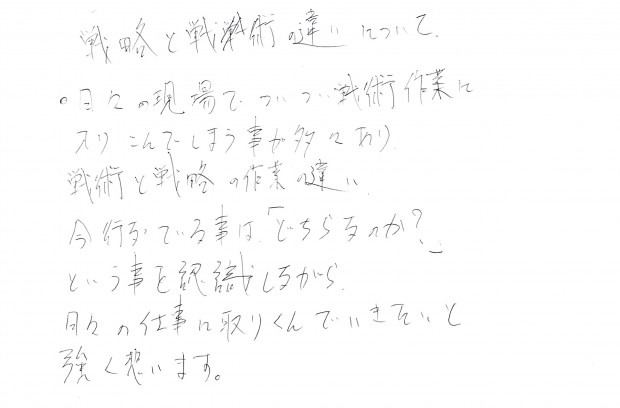 戦略と戦術の違いについて、
。日々の現場でついつい戦術作業に
入りこんでしまう事が多々あり、
戦術と戦略の作業の違い、
今行なっている事は、「どちらなのか？」
という事を認識しながら、
日々の仕事に取りくんでいきたいと
強く想います。